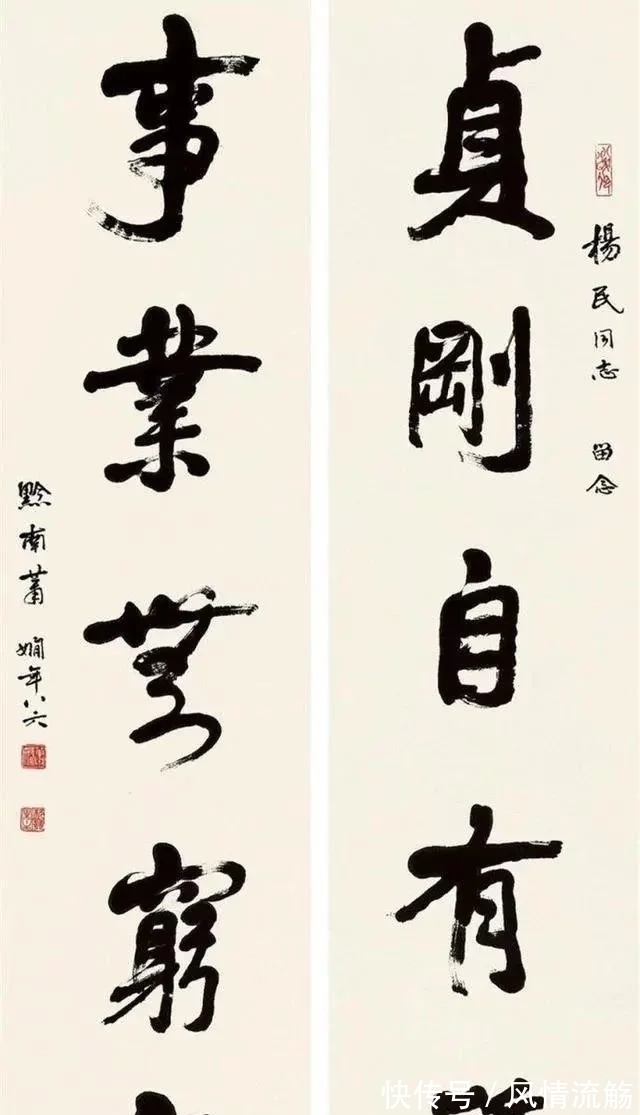 楊民同志 留念
貞剛自有
事業無窮
黔南蕭嫻年八六
快传号/风情流觞